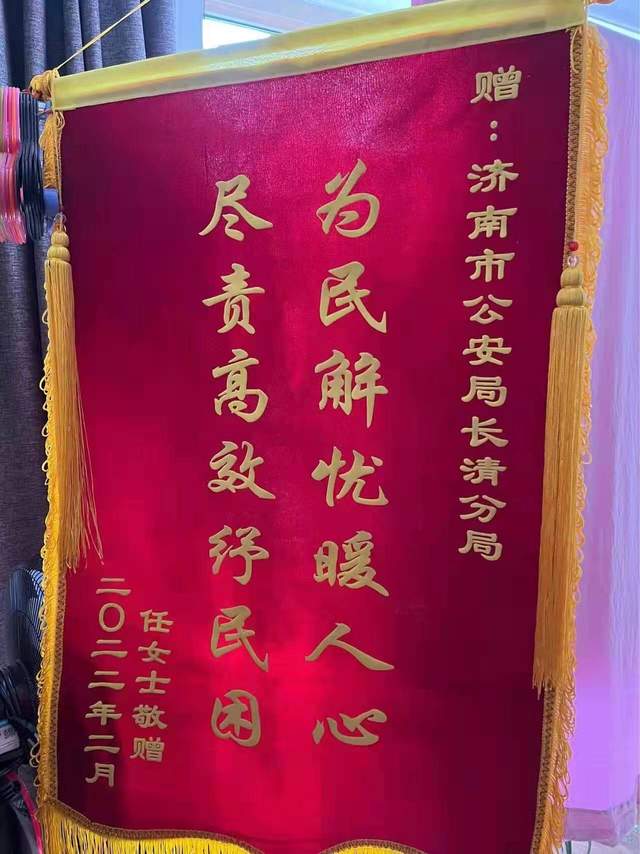 赠：济南市公安局长清分局
为民解忧暖人心
尽责高效纾民困
任女士敬赠
二〇二二年二月